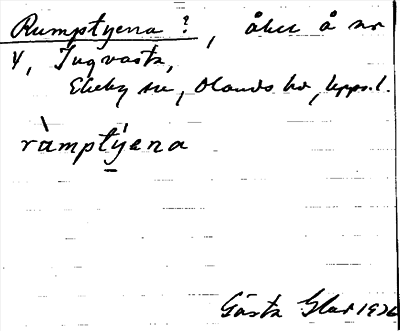 Rumptyena ?, åker å nr
4, Ingvasta,
Ekeby sn, Olands hd, Upps. l.
ràmptýena
Gösta Glad 1926